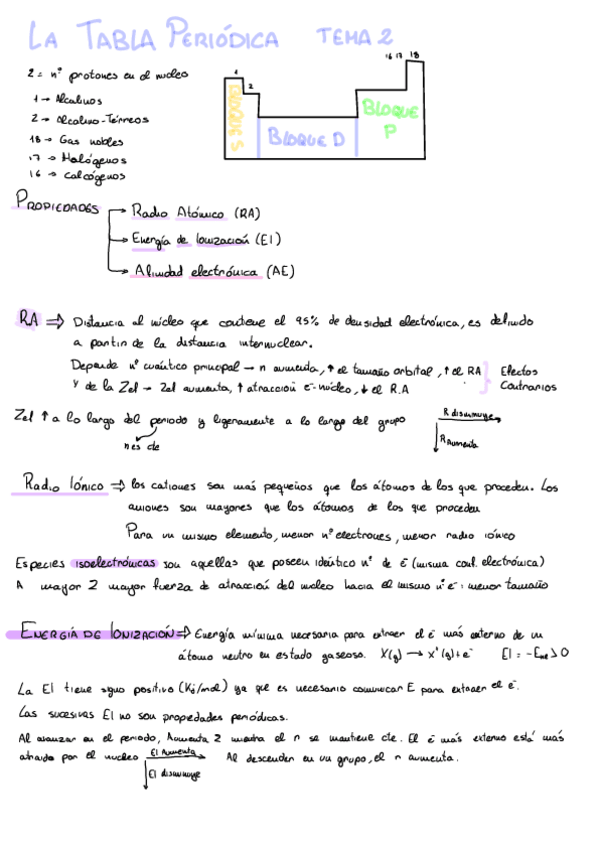 LA TABLA PERIÓDICA TEMA 2
Z = nº protones en el nucleo
1 → Alcalinos
2 → Alcalino-Térreos
18 → Gas nobles
17 → Halógenos
16 → Calcógenos
1
2
16 17 18
BLOQUE S
BLOQUE D
BLOQUE P
PROPIEDADES
→ Radio Atómico (RA)
→ Energía de Ionización (EI)
→ Afinidad electrónica (AE)
RA ⇒ Distancia al núcleo que contiene el 95% de densidad electrónica, es definido
a partir de la distancia internuclear.
Depende nº cuántico principal → n aumenta, ↑ el tamaño orbital, ↑ el RA
Y de la Zef → Zef aumenta, ↑ atracción e⁻-núcleo, ↓ el R.A
Efectos
Contrarios
Zef ↑ a lo largo del periodo y ligeramente a lo largo del grupo
n es cte
R disminuye
R Aumenta
Radio Iónico ⇒ los cationes son más pequeños que los átomos de los que proceden. Los
aniones son mayores que los átomos de los que proceden
Para un mismo elemento, menor nº electrones, menor radio iónico
Especies isoelectrónicas son aquellas que poseen idéntico nº de e⁻ (misma conf. electrónica)
A mayor Z mayor fuerza de atracción del nucleo hacia el mismo nº e⁻: menor tamaño
ENERGÍA DE IONIZACIÓN ⇒ Energía mínima necesaria para extraer el e⁻ más externo de un
átomo neutro en estado gaseoso. X(g) → X⁺(g) + e⁻ EI = -Eₙₑ > 0
La EI tiene signo positivo (KJ/mol) ya que es necesario comunicar E para extraer el e⁻.
Las sucesivas EI no son propiedades periódicas.
Al avanzar en el periodo, Aumenta Z mientra el n se mantiene cte. El e⁻ más externo está más
atraido por el nucleo EI Aumenta Al descender en un grupo, el n aumenta.
EI disminuye